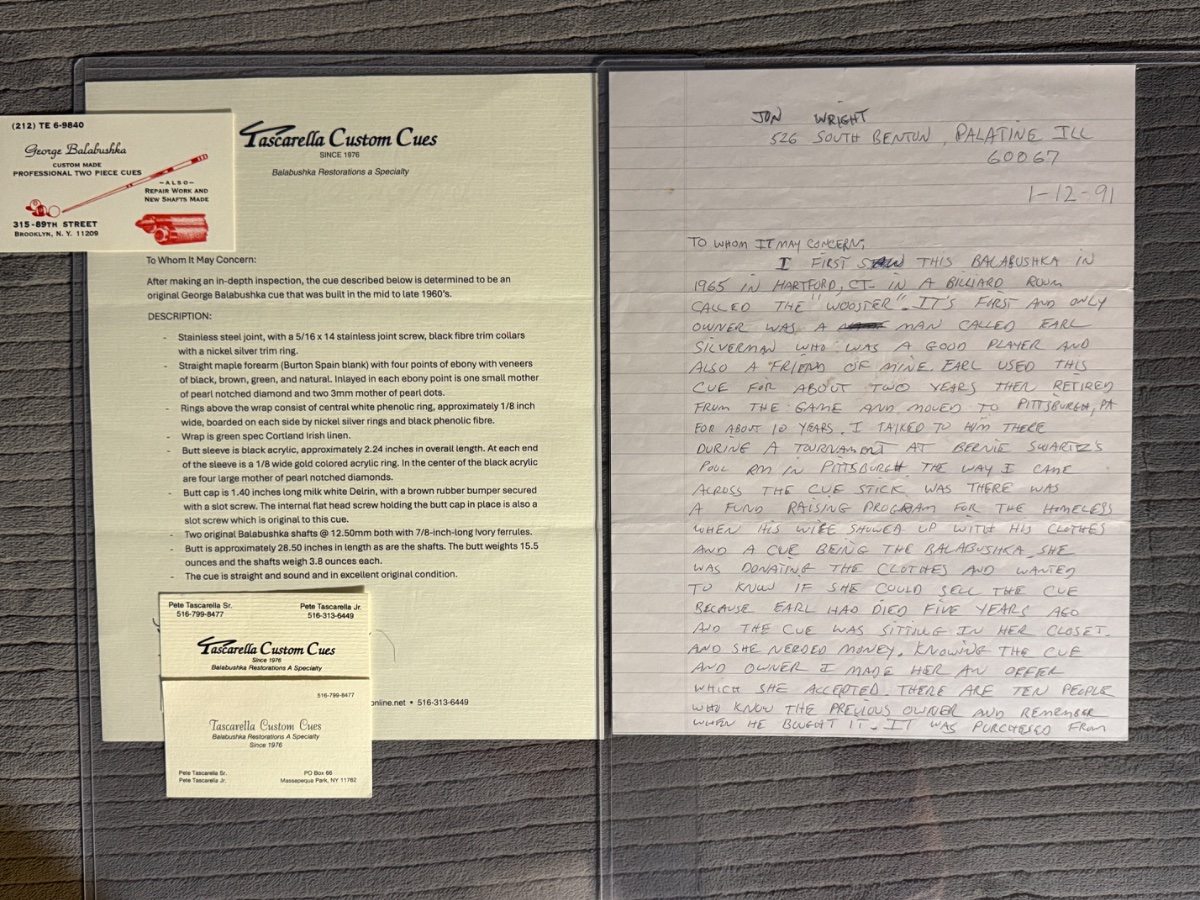 (212) TE 6-9840
George Balabushka
CUSTOM MADE
PROFESSIONAL TWO PIECE CUES
—ALSO—
REPAIR WORK AND
NEW SHAFTS MADE
315-89TH STREET
BROOKLYN, N. Y. 11209
Tascarella Custom Cues
SINCE 1976
Balabushka Restorations a Specialty
To Whom It May Concern:
After making an in-depth inspection, the cue described below is determined to be an
original George Balabushka cue that was built in the mid to late 1960's.
DESCRIPTION:
- Stainless steel joint, with a 5/16 x 14 stainless joint screw, black fibre trim collars
with a nickel silver trim ring.
- Straight maple forearm (Burton Spain blank) with four points of ebony with veneers
of black, brown, green, and natural. Inlayed in each ebony point is one small mother
of pearl notched diamond and two 3mm mother of pearl dots.
- Rings above the wrap consist of central white phenolic ring, approximately 1/8 inch
wide, boarded on each side by nickel silver rings and black phenolic fibre.
- Wrap is green spec Cortland Irish linen.
- Butt sleeve is black acrylic, approximately 2.24 inches in overall length. At each end
of the sleeve is a 1/8 wide gold colored acrylic ring. In the center of the black acrylic
are four large mother of pearl notched diamonds.
- Butt cap is 1.40 inches long milk white Delrin, with a brown rubber bumper secured
with a slot screw. The internal flat head screw holding the butt cap in place is also a
slot screw which is original to this cue.
- Two original Balabushka shafts @ 12.50mm both with 7/8-inch-long Ivory ferrules.
- Butt is approximately 28.50 inches in length as are the shafts. The butt weights 15.5
ounces and the shafts weigh 3.8 ounces each.
- The cue is straight and sound and in excellent original condition.
Pete Tascarella Sr.
516-799-8477
Pete Tascarella Jr.
516-313-6449
Tascarella Custom Cues
Since 1976
Balabushka Restorations a Specialty
online.net • 516-313-6449
516-799-8477
Tascarella Custom Cues
Balabushka Restorations A Specialty
Since 1976
Pete Tascarella Sr.
Pete Tascarella Jr.
PO Box 66
Massapequa Park, NY 11762
JON WRIGHT
526 SOUTH BENTON, PALATINE ILL
60067
1-12-91
TO WHOM IT MAY CONCERN;
I FIRST SAW THIS BALABUSHKA IN
1965 IN HARTFORD, CT. IN A BILLIARD ROOM
CALLED THE "WOOSTER". IT'S FIRST AND ONLY
OWNER WAS A MAN CALLED EARL
SILVERMAN WHO WAS A GOOD PLAYER AND
ALSO A FRIEND OF MINE. EARL USED THIS
CUE FOR ABOUT TWO YEARS THEN RETIRED
FROM THE GAME AND MOVED TO PITTSBURGH, PA
FOR ABOUT 10 YEARS. I TALKED TO HIM THERE
DURING A TOURNAMENT AT BERNIE SWARTZ'S
POOL RM IN PITTSBURGH THE WAY I CAME
ACROSS THE CUE STICK WAS THERE WAS
A FUND RAISING PROGRAM FOR THE HOMELESS
WHEN HIS WIFE SHOWED UP WITH HIS CLOTHES
AND A CUE BEING THE BALABUSHKA. SHE
WAS DONATING THE CLOTHES AND WANTED
TO KNOW IF SHE COULD SELL THE CUE
BECAUSE EARL HAD DIED FIVE YEARS AGO
AND THE CUE WAS SITTING IN HER CLOSET.
AND SHE NEEDED MONEY. KNOWING THE CUE
AND OWNER I MADE HER AN OFFER
WHICH SHE ACCEPTED. THERE ARE TEN PEOPLE
WHO KNOW THE PREVIOUS OWNER AND REMEMBER
WHEN HE BOUGHT IT. IT WAS PURCHESED FROM